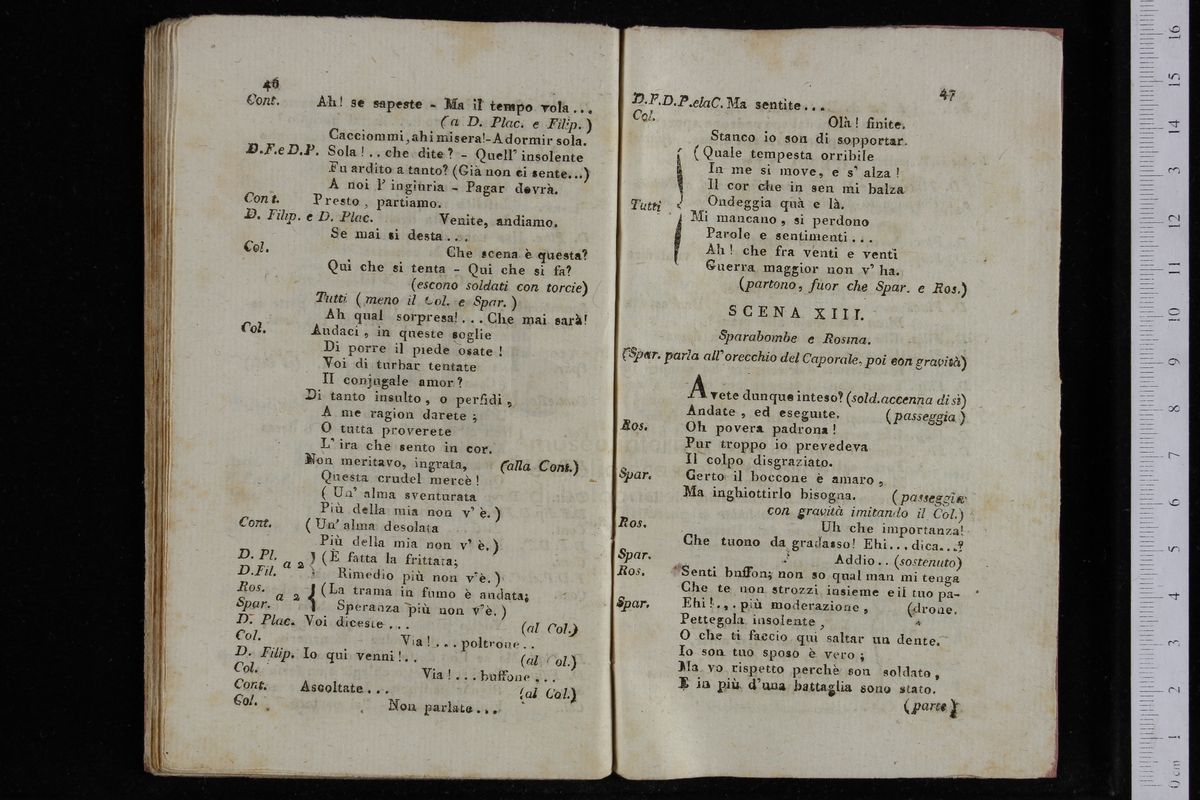 46
Cont. Ah! se sapeste - Ma il tempo vola...
(a D. Plac. e Filip.)
Cacciommi, ahi misera!-A dormir sola.
D.F. e D.P. Sola!.. che dite? - Quell' insolente
Fu ardito a tanto? (Già non ci sente...)
A noi l' inginria - Pagar dovrà.
Cont. Presto, partiamo.
D. Filip. e D. Plac. Venite, andiamo.
Se mai si desta...
Col. Che scena è questa?
Qui che si tenta - Qui che si fa?
(escono soldati con torcie)
Tutti (meno il Col. e Spar.)
Ah qual sorpresa!... Che mai sarà!
Col. Audaci, in queste soglie
Di porre il piede osate!
Voi di turbar tentate
Il conjugale amor?
Di tanto insulto, o perfidi,
A me ragion darete;
O tutta proverete
L' ira che sento in cor.
Non meritavo, ingrata, (alla Cont.)
Questa crudel mercè!
(Un' alma sventurata
Più della mia non v' è.)
Cont. (Un' alma desolata
Più della mia non v' è.)
D. Pl. D. Fil. a 2 (È fatta la frittata;
Rimedio più non v'è.)
Ros. Spar. a 2 (La trama in fumo è andata;
Speranza più non v'è.)
D. Plac. Voi diceste... (al Col.)
Col. Via!... poltrone..
D. Filip. Io qui venni!.. (al Col.)
Col. Via!... buffone...
Cont. Ascoltate... (al Col.)
Col. Non parlate...
47
D.F. D.P. e la C. Ma sentite...
Col. Olà! finite.
Stanco io son di sopportar.
(Quale tempesta orribile
In me si move, e s' alza!
Il cor che in sen mi balza
Ondeggia quà e là.
Tutti Mi mancano, si perdono
Parole e sentimenti...
Ah! che fra venti e venti
Guerra maggior non v' ha.
(partono, fuor che Spar. e Ros.)
SCENA XIII.
Sparabombe e Rosina.
(Spar. parla all' orecchio del Caporale, poi con gravità)
Avete dunque inteso? (sold. accenna di sì)
Andate, ed eseguite. (passeggia)
Ros. Oh povera padrona!
Pur troppo io prevedeva
Il colpo disgraziato.
Spar. Certo il boccone è amaro,
Ma inghiottirlo bisogna. (passeggia
con gravità imitando il Col.)
Ros. Uh che importanza!
Che tuono da gradasso! Ehi... dica...?
Spar. Addio.. (sostenuto)
Ros. Senti buffon; non so qual man mi tenga
Che te non strozzi insieme e il tuo pa-
Spar. Ehi!... più moderazione, (drone.
Pettegola insolente,
O che ti faccio qui saltar un dente.
Io son tuo sposo è vero;
Ma vo rispetto perchè son soldato,
E in più d'una battaglia sono stato.
(parte)
16
15
14
13
12
11
10
9
8
7
6
5
4
3
2
1
0 cm